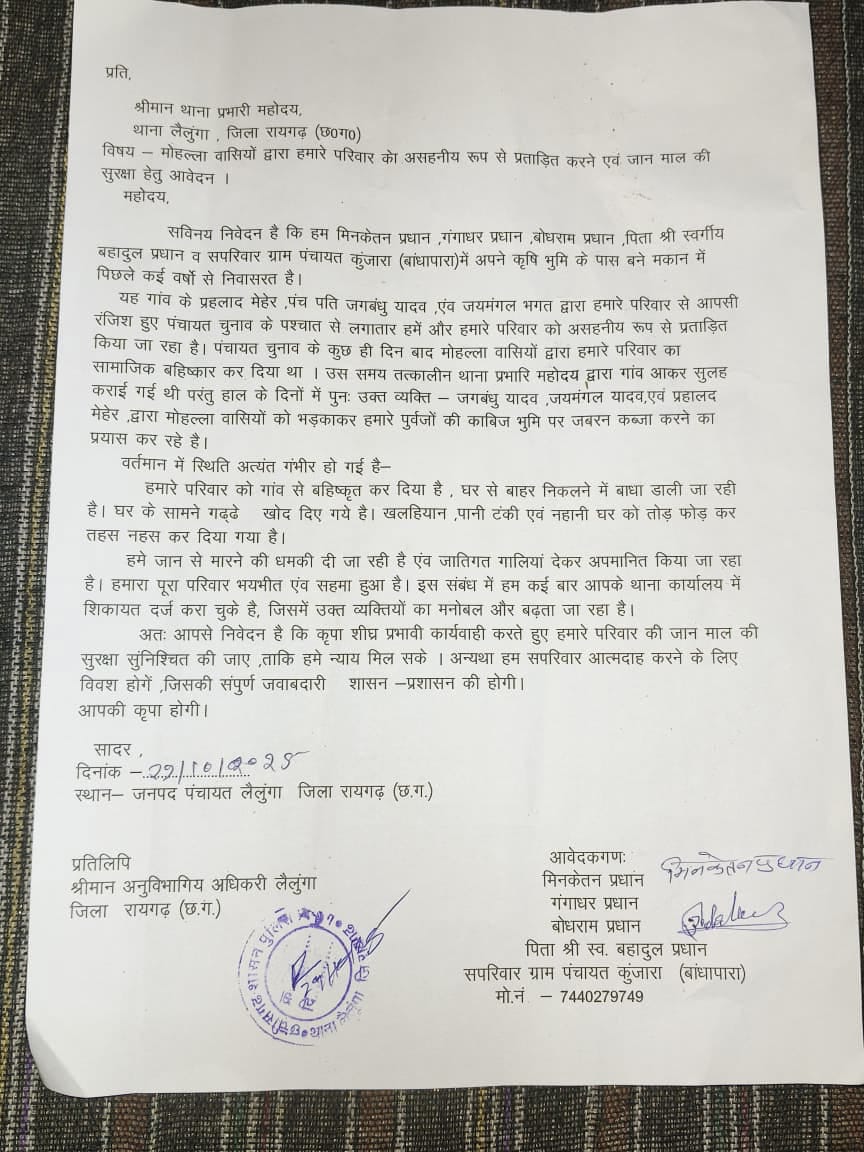 प्रति,
श्रीमान थाना प्रभारी महोदय,
थाना लैलुंगा , जिला रायगढ़ (छ0ग0)
विषय – मोहल्ला वासियों द्वारा हमारे परिवार केा असहनीय रूप से प्रताड़ित करने एवं जान माल की
सुरक्षा हेतु आवेदन ।
महोदय,
सविनय निवेदन है कि हम मिनकेतन प्रधान ,गंगाधर प्रधान ,बोधराम प्रधान ,पिता श्री स्वर्गीय
बहादुल प्रधान व सपरिवार ग्राम पंचायत कुंजारा (बांधापारा)में अपने कृषि भुमि के पास बने मकान में
पिछले कई वर्षो से निवासरत है।
यह गांव के प्रहलाद मेहेर ,पंच पति जगबंधु यादव ,एंव जयमंगल भगत द्वारा हमारे परिवार से आपसी
रंजिश हुए पंचायत चुनाव के पश्चात से लगातार हमें और हमारे परिवार को असहनीय रूप से प्रताड़ित
किया जा रहा है। पंचायत चुनाव के कुछ ही दिन बाद मोहल्ला वासियों द्वारा हमारे परिवार का
सामाजिक बहिष्कार कर दिया था । उस समय तत्कालीन थाना प्रभारि महोदय द्वारा गांव आकर सुलह
कराई गई थी परंतु हाल के दिनों में पुनः उक्त व्यक्ति – जगबंधु यादव ,जयमंगल यादव,एवं प्रहालद
मेहेर ,द्वारा मोहल्ला वासियों को भड़काकर हमारे पुर्वजों की काबिज भुमि पर जबरन कब्जा करने का
प्रयास कर रहे है।
वर्तमान में स्थिति अत्यंत गंभीर हो गई है–
हमारे परिवार को गांव से बहिष्कृत कर दिया है , घर से बाहर निकलने में बाधा डाली जा रही
है। घर के सामने गढ्ढे खोद दिए गये है। खलहियान ,पानी टंकी एवं नहानी घर को तोड़ फोड़ कर
तहस नहस कर दिया गया है।
हमे जान से मारने की धमकी दी जा रही है एंव जातिगत गालियां देकर अपमानित किया जा रहा
है। हमारा पूरा परिवार भयभीत एंव सहमा हुआ है। इस संबंध में हम कई बार आपके थाना कार्यालय में
शिकायत दर्ज करा चुके है, जिसमें उक्त व्यक्तियों का मनोबल और बढ़ता जा रहा है।
अतः आपसे निवेदन है कि कृपा शीघ्र प्रभावी कार्यवाही करते हुए हमारे परिवार की जान माल की
सुरक्षा सुंनिश्चित की जाए ,ताकि हमे न्याय मिल सके । अन्यथा हम सपरिवार आत्मदाह करने के लिए
विवश होगें ,जिसकी संपुर्ण जवाबदारी शासन –प्रशासन की होगी।
आपकी कृपा होगी।
सादर ,
दिनांक –.../10/2025
स्थान– जनपद पंचायत लैलुंगा जिला रायगढ़ (छ.ग.)
प्रतिलिपि
श्रीमान अनुविभागिय अधिकरी लैलुंगा
जिला रायगढ़ (छ.ग.)
आवेदकगणः
मिनकेतन प्रधान मिनकेतन प्रधान
गंगाधर प्रधान
बोधराम प्रधान
पिता श्री स्व. बहादुल प्रधान
सपरिवार ग्राम पंचायत कुंजारा (बांधापारा)
मो.नं – 7440279749